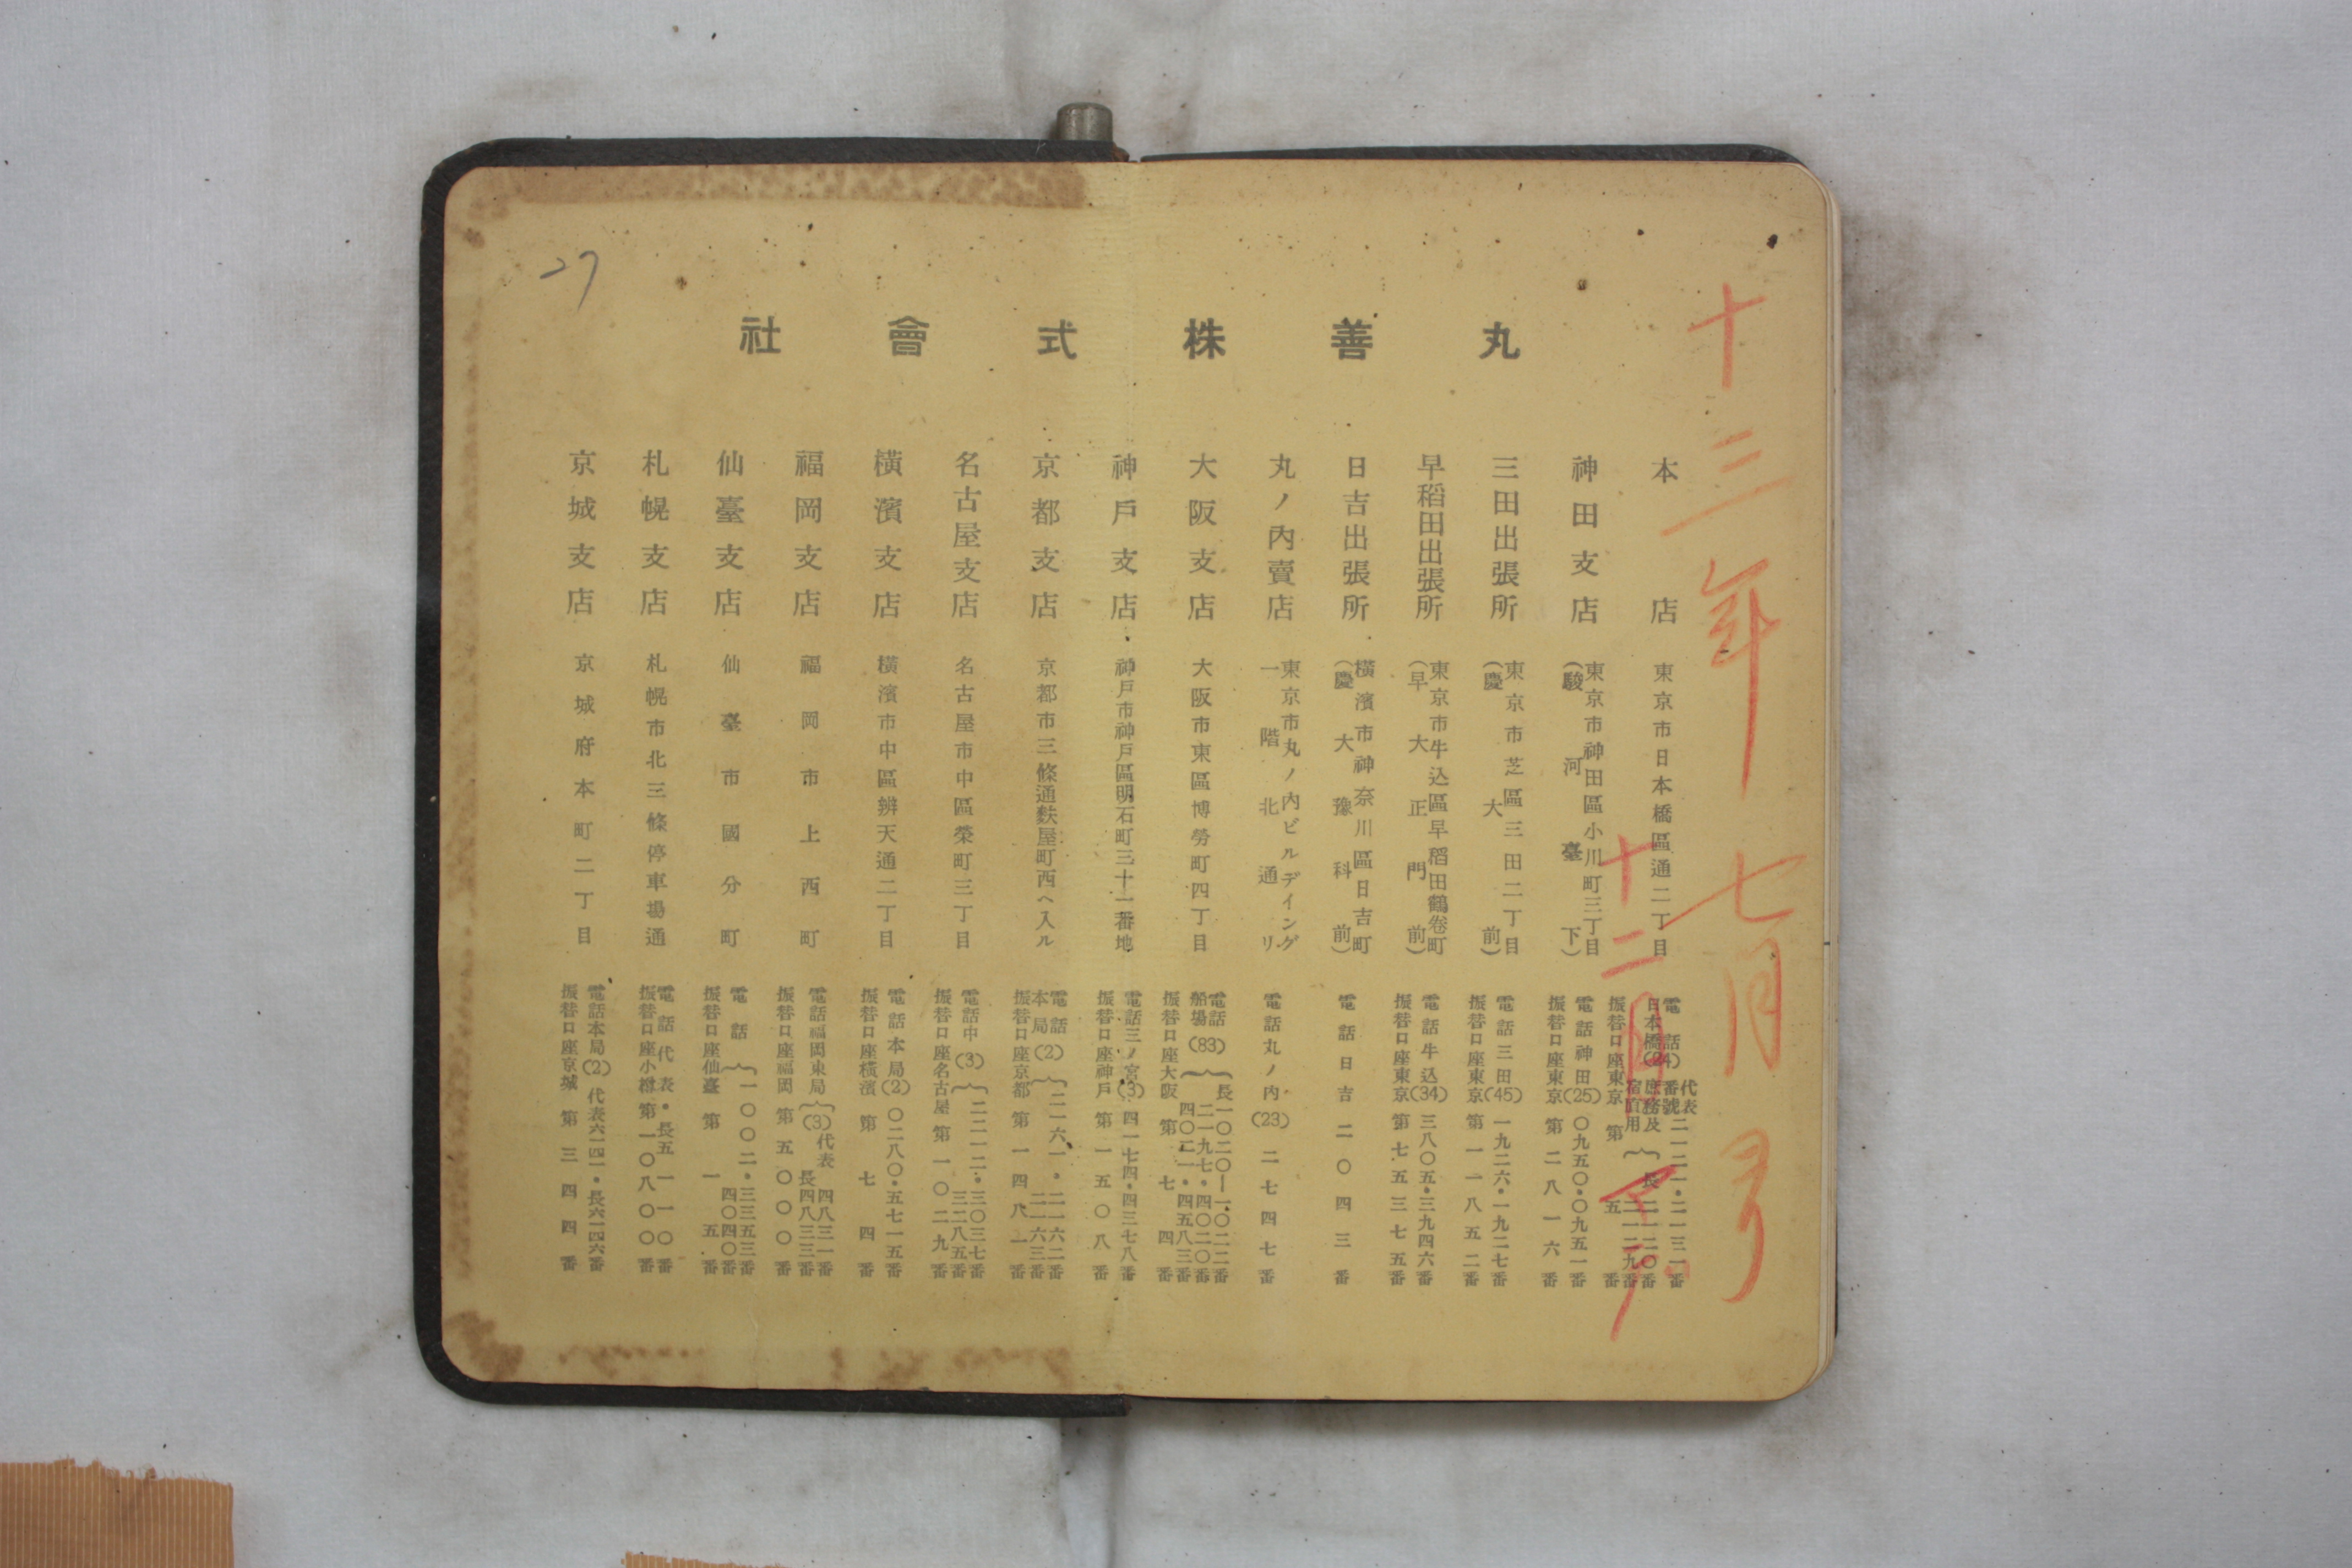 27
丸善株式會社
十三年七月ヨリ
十二月マデ
本店 東京市日本橋區通二丁目
電話日本橋(24)
代表番號 二一二一・二一三一番
庶務及宿直用 長二一二〇番 二一二九番
振替口座東京第五番
神田支店 東京市神田區小川町三丁目
(駿河臺下)
電話神田(25)〇九五〇・〇九五一番
振替口座東京第二八一六番
三田出張所 東京市芝區三田二丁目
(慶大前)
電話三田(45)一九二六・一九二七番
振替口座東京第一一八五二番
早稻田出張所 東京市牛込區早稻田鶴卷町
(早大正門前)
電話牛込(34)三八〇五・三九四六番
振替口座東京第七五三七五番
日吉出張所 橫濱市神奈川區日吉町
(慶大豫科前)
電話日吉二〇四三番
丸ノ內賣店 東京市丸ノ內ビルデイング
一階北通リ
電話丸ノ內(23)二七四七番
大阪支店 大阪市東區博勞町四丁目
電話船場(83)
長一〇二〇―一〇二二番
二一九七・四〇二〇番
四〇二一・四五八三番
振替口座大阪第七四番
神戶支店 神戶市神戶區明石町三十一番地
電話三ノ宮(3)四一七四・四三七八番
振替口座神戶第一五〇八番
京都支店 京都市三條通麩屋町西へ入ル
電話本局(2)
二一六一・二一六二番
二一六三番
振替口座京都第一四八一番
名古屋支店 名古屋市中區榮町三丁目
電話中(3)
二二一二・三〇三七番
三二八五番
振替口座名古屋第一〇二九番
橫濱支店 橫濱市中區辨天通二丁目
電話本局(2)〇二八〇・五七一五番
振替口座橫濱第七四番
福岡支店 福岡市上西町
電話福岡東局(3)
代表四八三一番
長四八三三番
振替口座福岡第五〇〇〇番
仙臺支店 仙臺市國分町
電話
一〇〇二・三三五三番
四〇四〇番
振替口座仙臺第一五番
札幌支店 札幌市北三條停車場通
電話代表・長五一一〇番
振替口座小樽第一〇八〇〇番
京城支店 京城府本町二丁目
電話本局(2)代表六一四一・長六一四六番
振替口座京城第三四四番